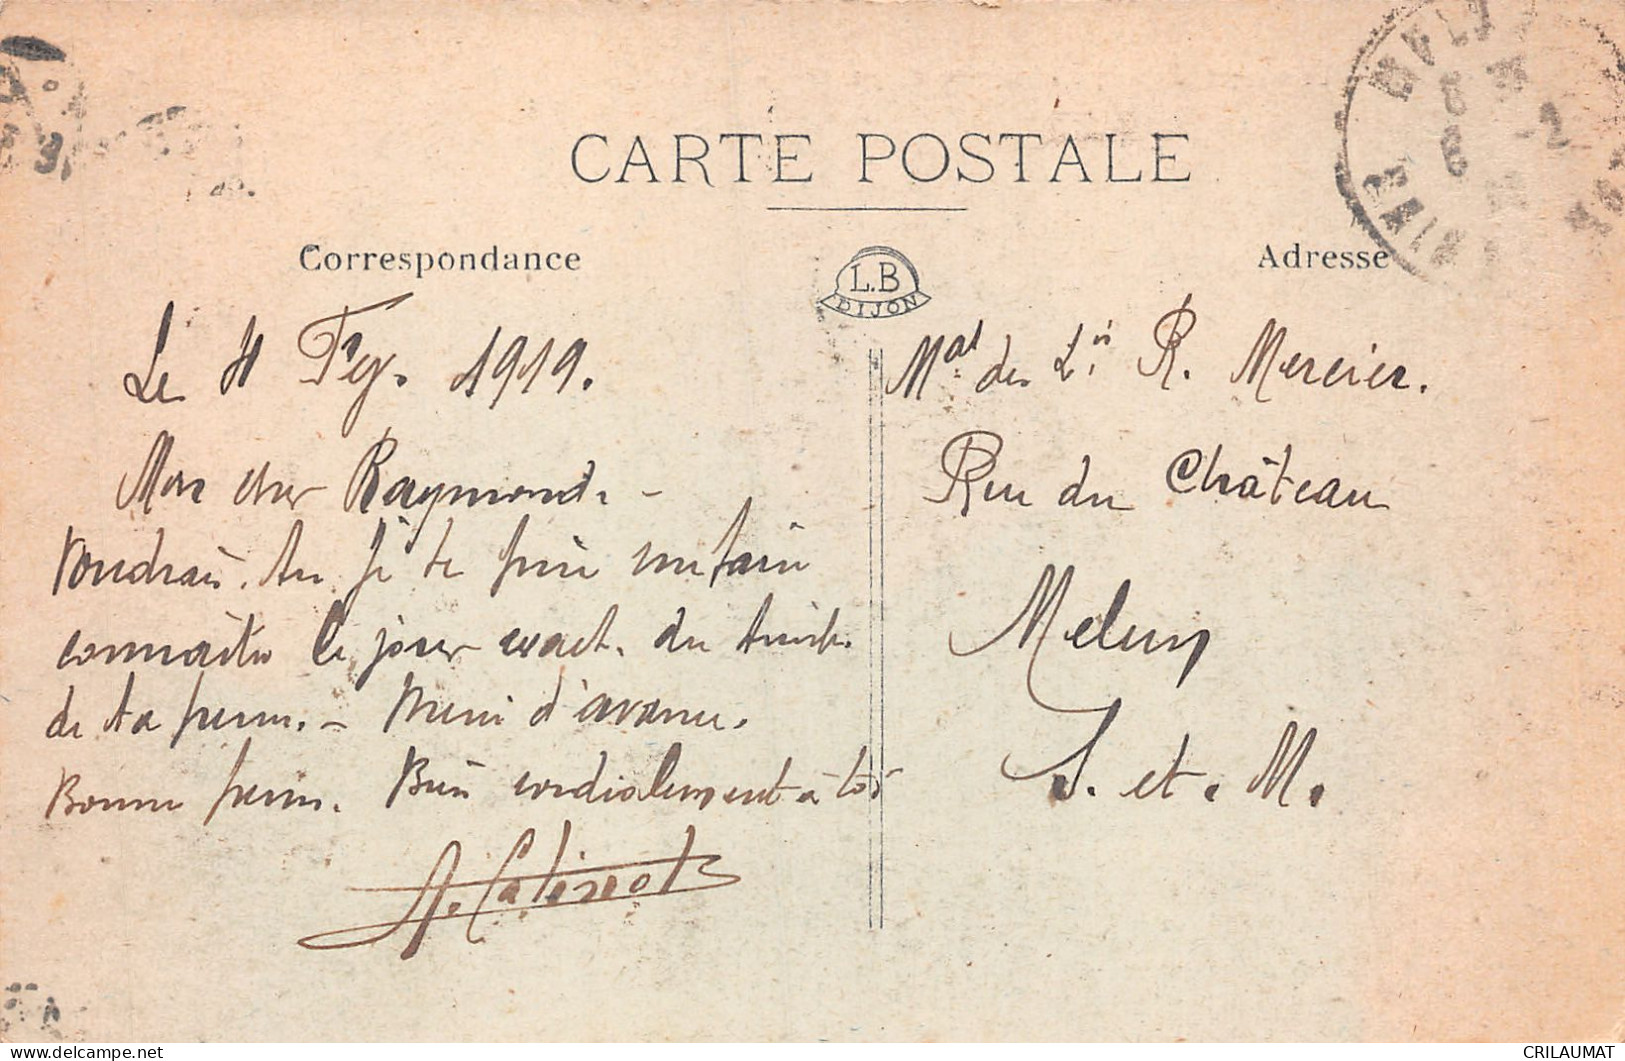 CARTE POSTALE
Correspondance
L.B
DIJON
Adresse
Le 4 Fev. 1919.
Mon cher Raymond. -
Voudrais. tu je te prie me faire
connaître le jour exact. du
de ta perm. - d'avance.
Bonne perm. Bien cordialement à toi
Mal des Lis R. Mercier.
Rue du Château
Melun
S. et. M.
CRILAUMAT